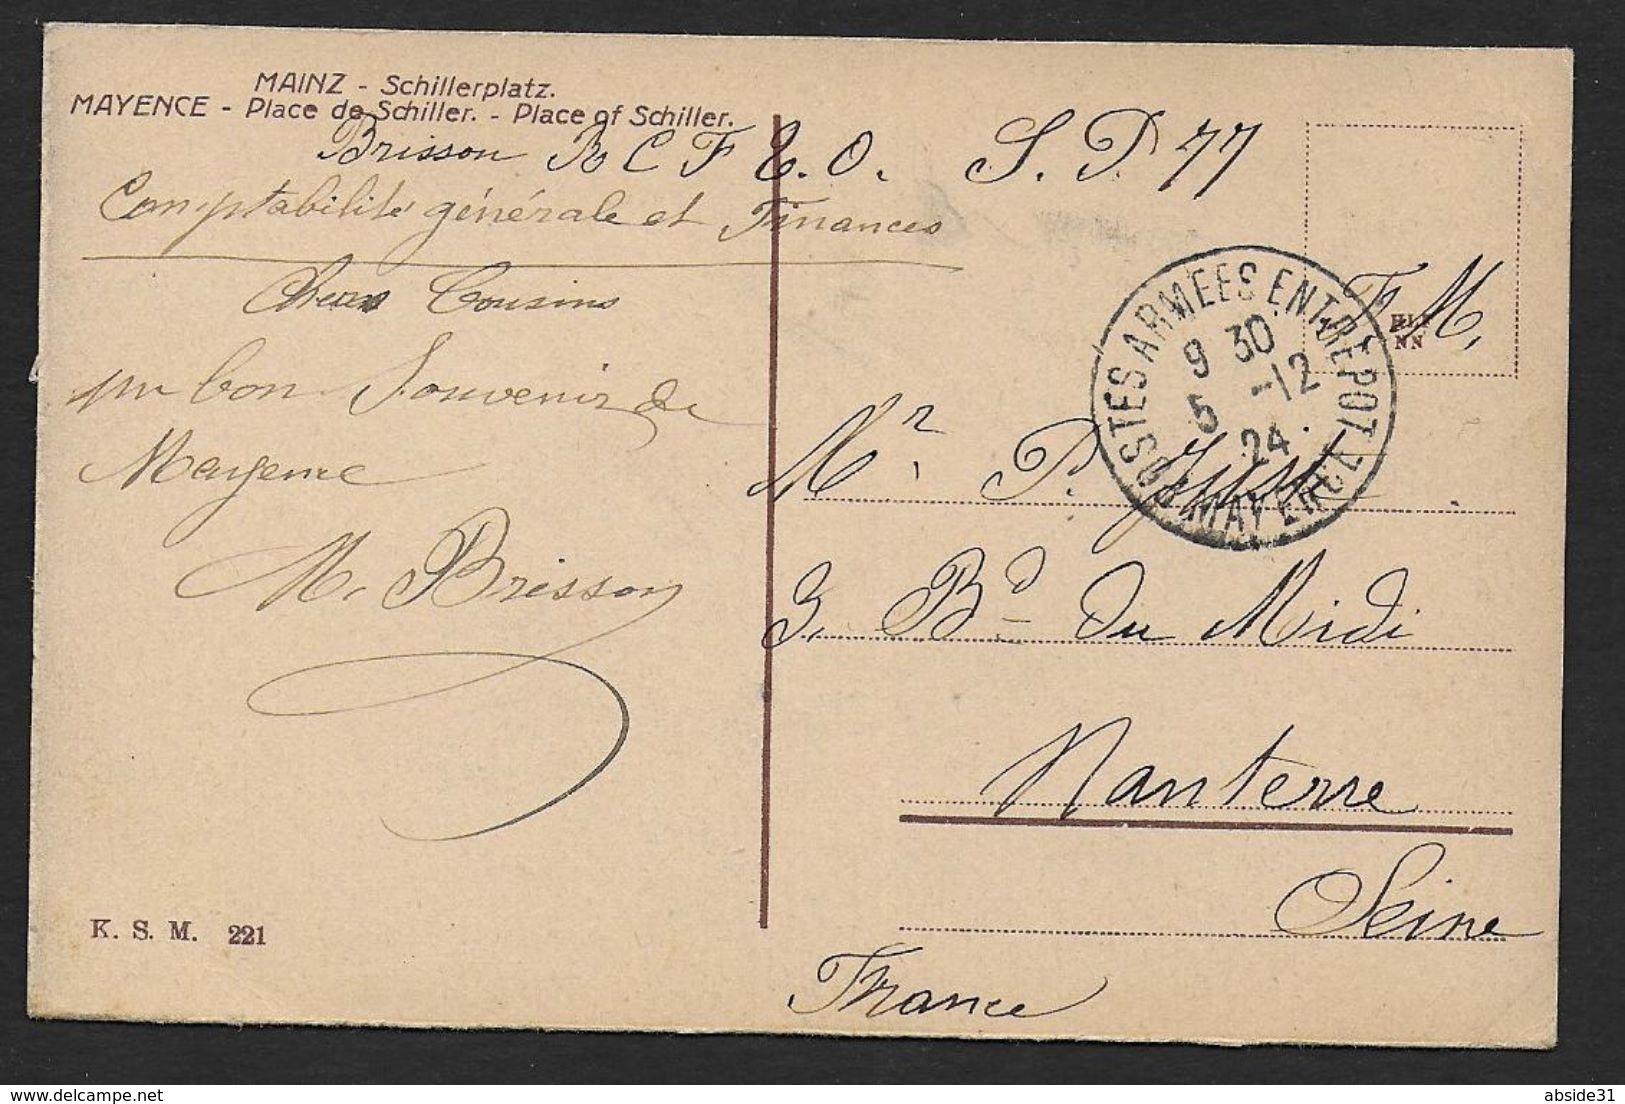 MAINZ - Schillerplatz.
MAYENCE - Place de Schiller. - Place of Schiller.
Brisson R C F E. O. S. P. 77
Comptabilité générale et Finances
Chers Cousins
un bon Souvenir de
Mayence
M. Brisson
K. S. M. 221
F. M.
POSTES ARMEES ENTREPOT
MAYENCE
9 30
5 -12
24
Mr. P. Just
3, Bd du Midi
Nanterre
Seine
France
abside31